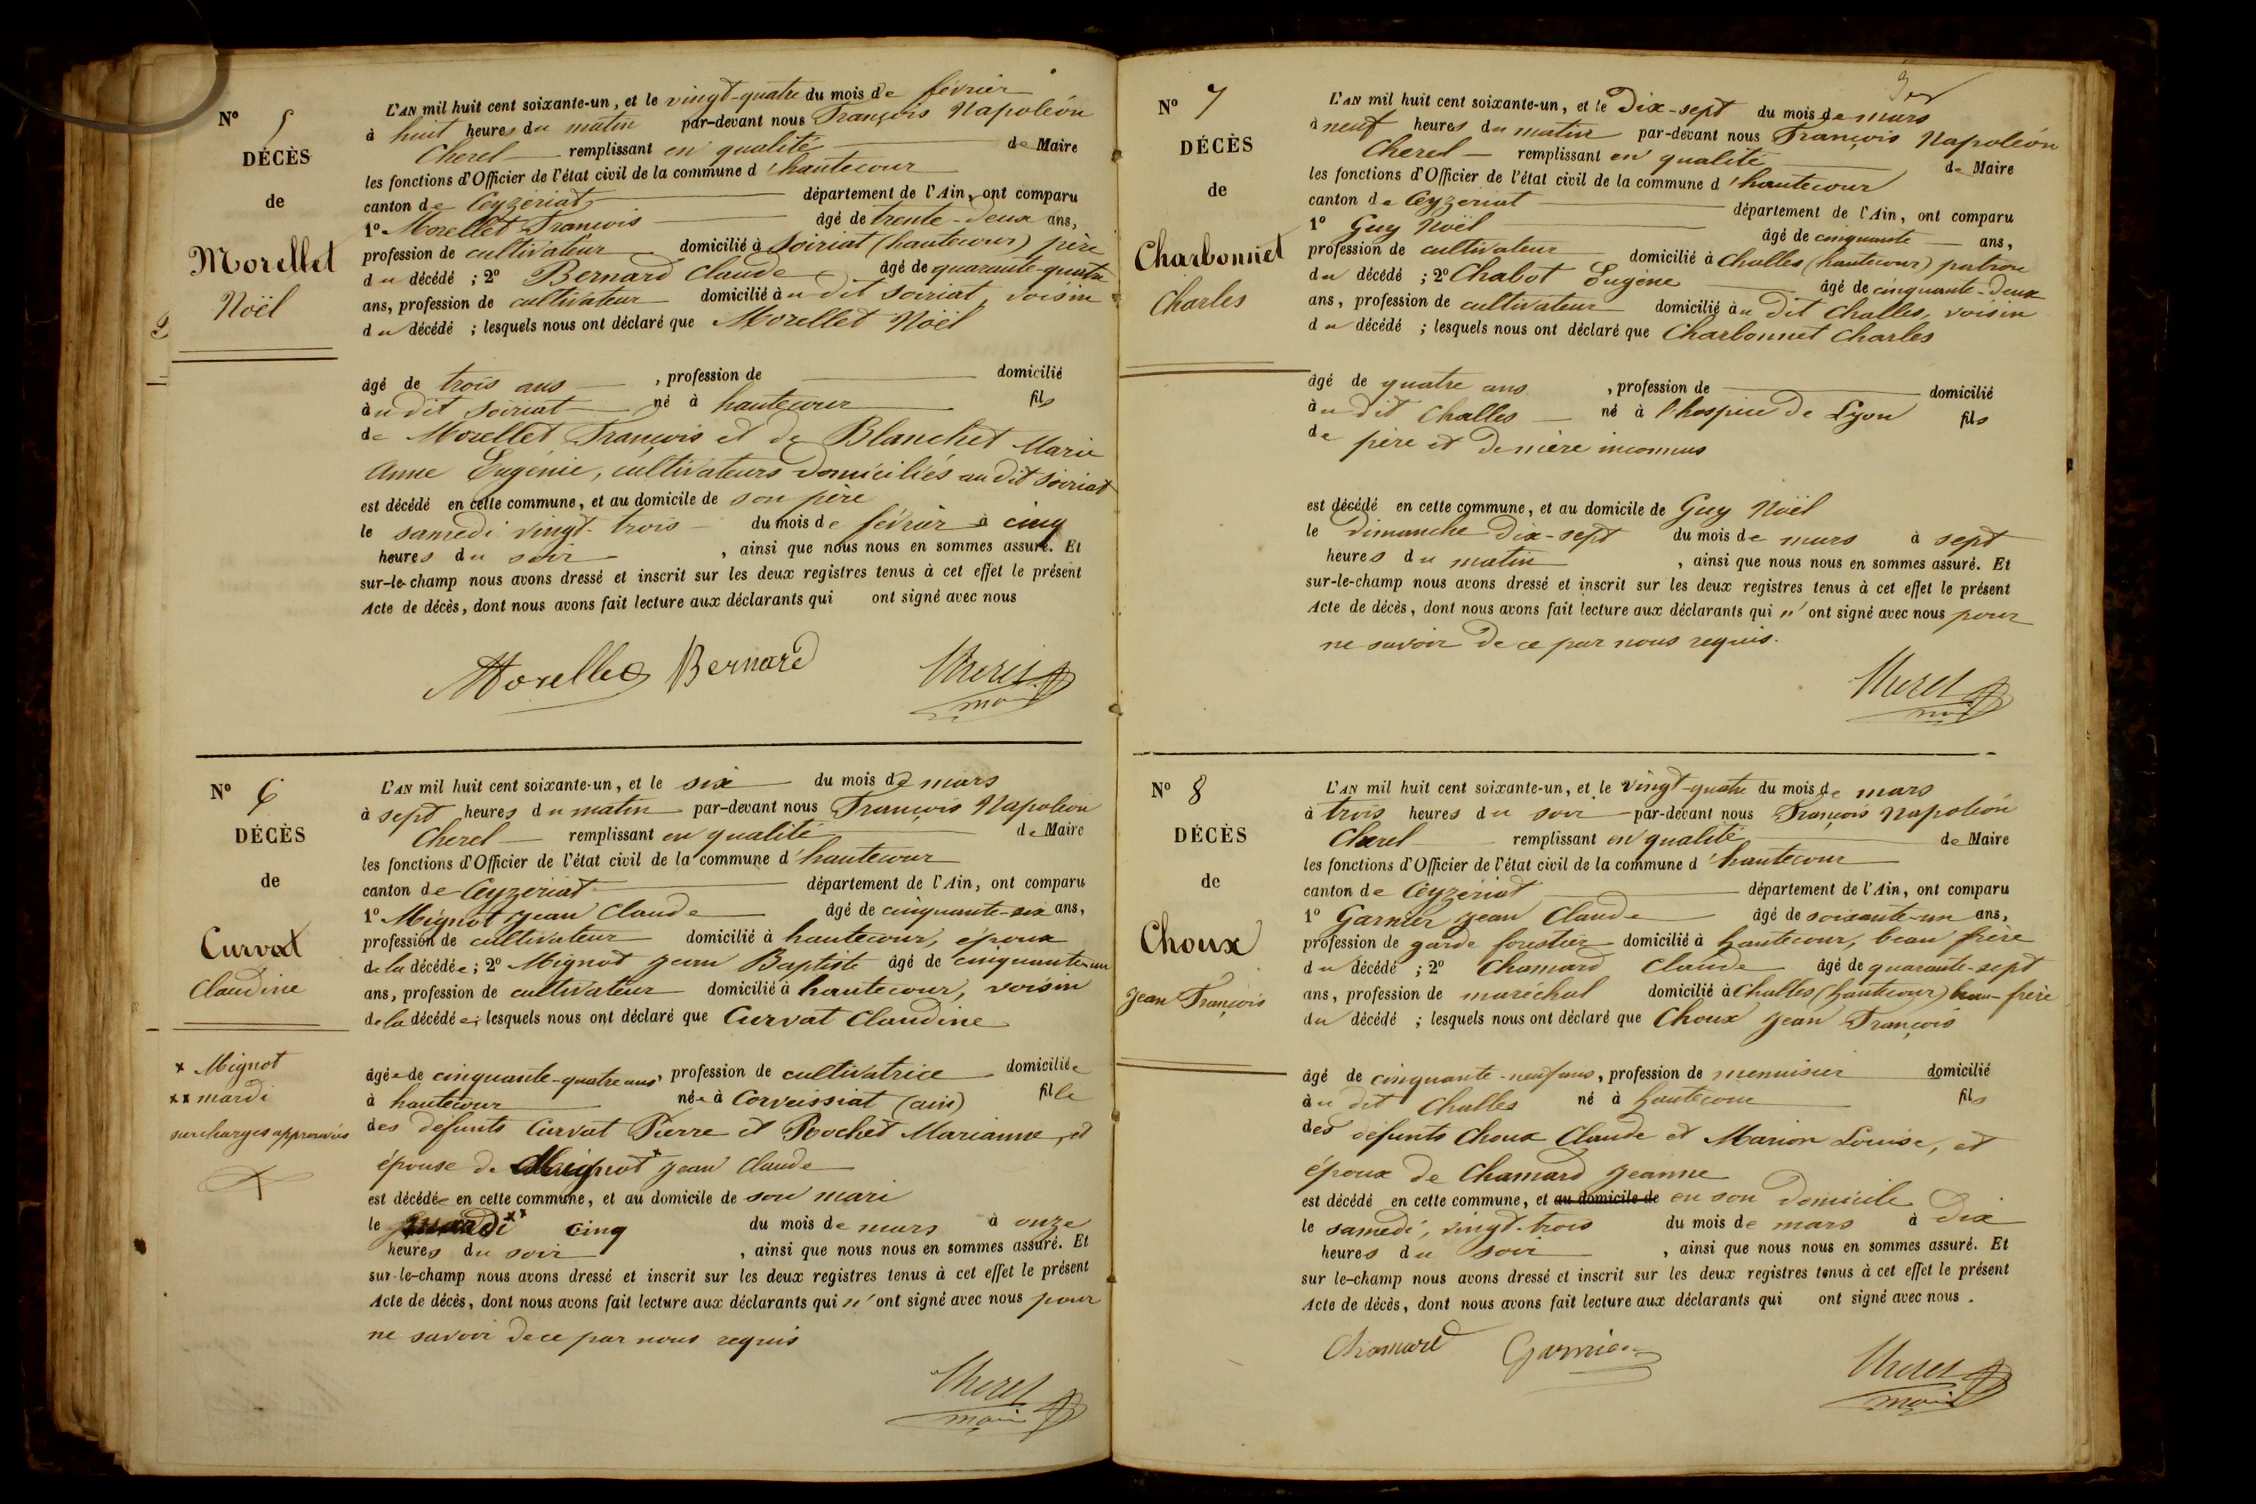 Nº 5
DÉCÈS
de
Morellet
Noël
L'AN mil huit cent soixante-un, et le vingt-quatre du mois de février
à huit heures du matin par-devant nous François Napoléon
Cherel remplissant en qualité de Maire
les fonctions d'Officier de l'état civil de la commune d'hautecour
canton de Ceyzériat département de l'Ain, ont comparu
1º Morellet François âgé de trente-deux ans,
profession de cultivateur domicilié à Soiriat (hautecour) père
du décédé ; 2º Bernard Claude âgé de quarante-quatre
ans, profession de cultivateur domicilié au dit soiriat, voisin
du décédé ; lesquels nous ont déclaré que Morellet Noël
âgé de trois ans , profession de domicilié
au dit Soiriat né à hautecour fils
de Morellet François et de Blanchet Marie
Anne Eugénie, cultivateurs domiciliés au dit soiriat
est décédé en cette commune, et au domicile de son père
le samedi vingt-trois du mois de février à cinq
heures du soir , ainsi que nous nous en sommes assuré. Et
sur-le-champ nous avons dressé et inscrit sur les deux registres tenus à cet effet le présent
Acte de décès, dont nous avons fait lecture aux déclarants qui ont signé avec nous
Morellet Bernard Cherel
maire
Nº 6
DÉCÈS
de
Curvat
Claudine
x Mignot
xx mardi
surcharges approuvées
L'AN mil huit cent soixante-un, et le six du mois de mars
à sept heures du matin par-devant nous François Napoléon
Cherel remplissant en qualité de Maire
les fonctions d'Officier de l'état civil de la commune d'hautecour
canton de Ceyzériat département de l'Ain, ont comparu
1º Mignot Jean Claude âgé de cinquante-six ans,
profession de cultivateur domicilié à hautecour, époux
de la décédée ; 2º Mignot Jean Baptiste âgé de cinquante-un
ans, profession de cultivateur domicilié à hautecour, voisin
de la décédée ; lesquels nous ont déclaré que Curvat Claudine
âgée de cinquante-quatre ans, profession de cultivatrice domiciliée
à hautecour née à Corveissiat (ain) fille
des défunts Curvat Pierre et Rochet Marianne, et
épouse de Mignot x Jean Claude
est décédée en cette commune, et au domicile de son mari
le mardi xx cinq du mois de mars à onze
heures du soir , ainsi que nous nous en sommes assuré. Et
sur-le-champ nous avons dressé et inscrit sur les deux registres tenus à cet effet le présent
Acte de décès, dont nous avons fait lecture aux déclarants qui n'ont signé avec nous pour
ne savoir de ce par nous requis
Cherel
maire
Nº 7
DÉCÈS
de
Charbonnet
Charles
L'AN mil huit cent soixante-un, et le Dix-sept du mois de mars
à neuf heures du matin par-devant nous François Napoléon
Cherel remplissant en qualité de Maire
les fonctions d'Officier de l'état civil de la commune d'hautecour
canton de Ceyzériat département de l'Ain, ont comparu
1º Guy Noël âgé de cinquante ans,
profession de cultivateur domicilié à Challes (hautecour) patron
du décédé ; 2º Chabot Eugène âgé de cinquante-deux
ans, profession de cultivateur domicilié au dit Challes, voisin
du décédé ; lesquels nous ont déclaré que Charbonnet Charles
âgé de quatre ans , profession de domicilié
au dit Challes né à l'hospice de Lyon fils
de père et de mère inconnus
est décédé en cette commune, et au domicile de Guy Noël
le Dimanche Dix-sept du mois de mars à sept
heures du matin , ainsi que nous nous en sommes assuré. Et
sur-le-champ nous avons dressé et inscrit sur les deux registres tenus à cet effet le présent
Acte de décès, dont nous avons fait lecture aux déclarants qui n'ont signé avec nous pour
ne savoir de ce par nous requis.
Cherel
maire
Nº 8
DÉCÈS
de
Choux
Jean François
L'AN mil huit cent soixante-un, et le vingt-quatre du mois de mars
à trois heures du soir par-devant nous François Napoléon
Cherel remplissant en qualité de Maire
les fonctions d'Officier de l'état civil de la commune d'hautecour
canton de Ceyzériat département de l'Ain, ont comparu
1º Garnier Jean Claude âgé de soixante-un ans,
profession de garde forestier domicilié à hautecour, beau frère
du décédé ; 2º Chamard Claude âgé de quarante-sept
ans, profession de maréchal domicilié à Challes (hautecour) beau-frère
du décédé ; lesquels nous ont déclaré que Choux Jean François
âgé de cinquante-neuf ans, profession de menuisier domicilié
au dit Challes né à hautecour fils
des défunts Choux Claude et Marion Louise, et
époux de Chamard Jeanne
est décédé en cette commune, et au domicile de en son domicile
le samedi, vingt-trois du mois de mars à dix
heures du soir , ainsi que nous nous en sommes assuré. Et
sur le-champ nous avons dressé et inscrit sur les deux registres tenus à cet effet le présent
Acte de décès, dont nous avons fait lecture aux déclarants qui ont signé avec nous.
Chamard Garnier Cherel
maire